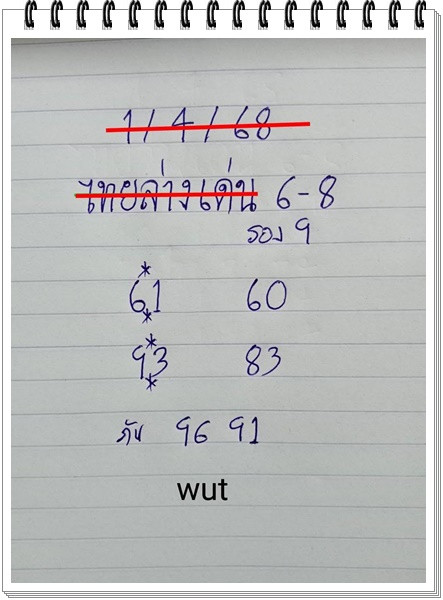 1/4/68
ไทยล่างเด่น 6-8
รอง 9
61 60
93 83
กัน 96 91
wut